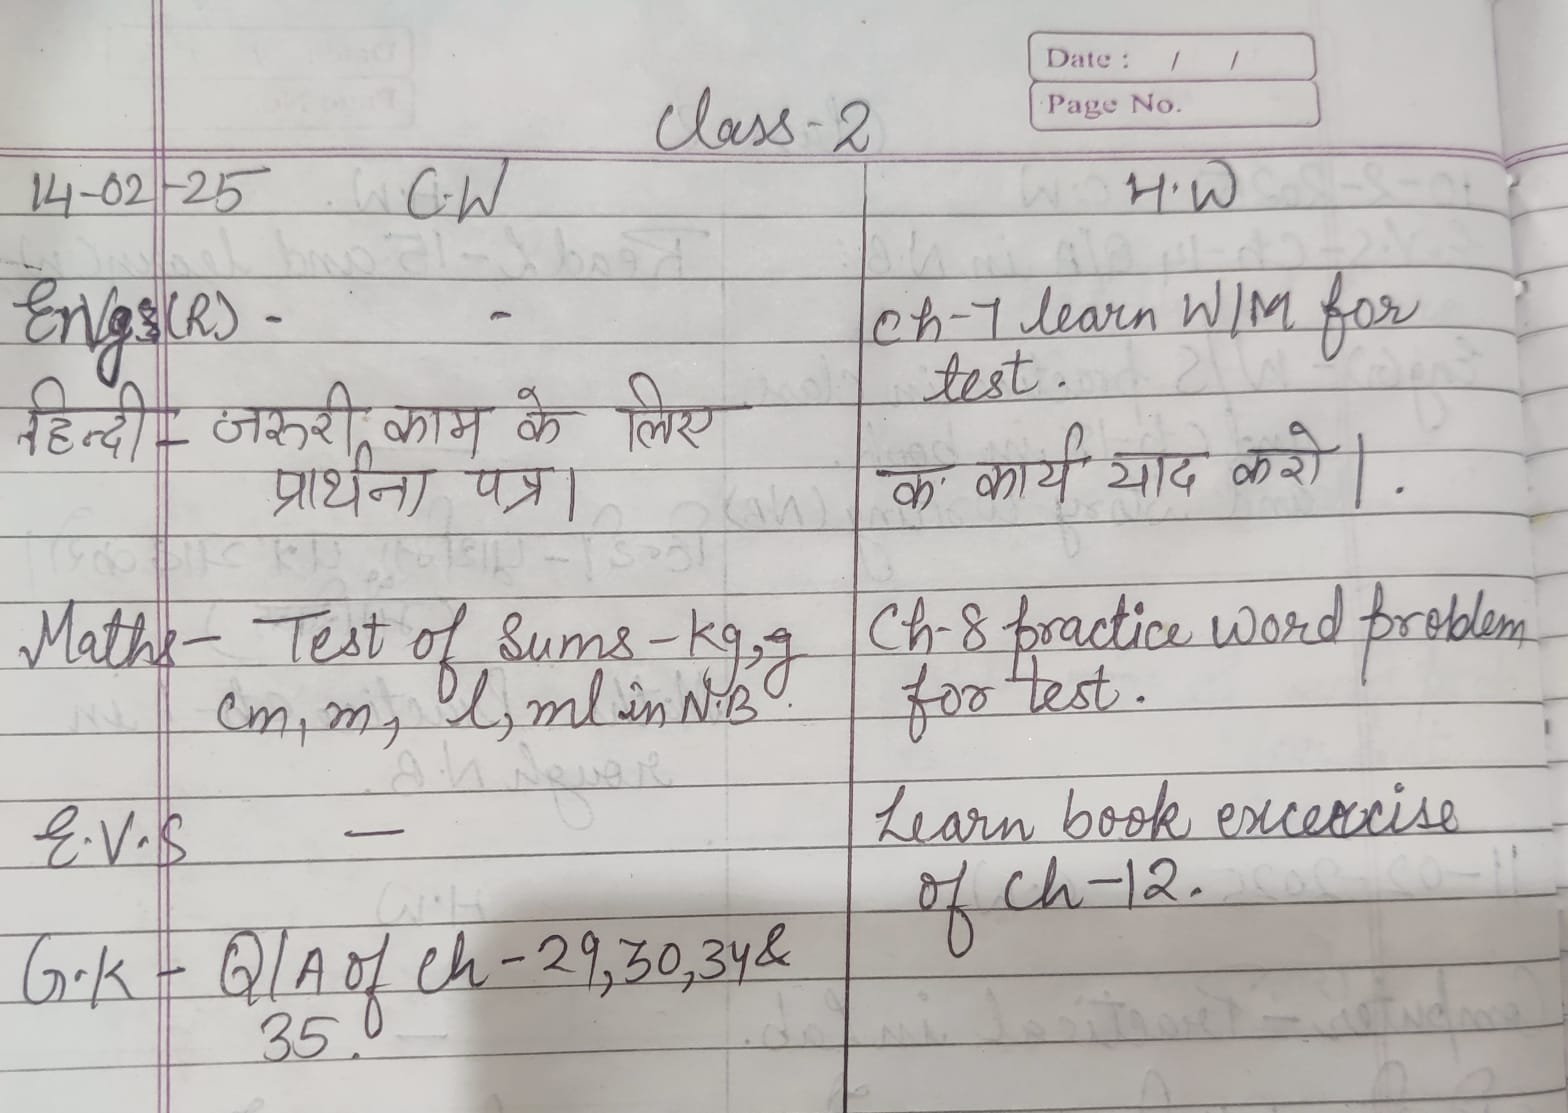 Date : / /
Page No.
Class-2
14-02-25 C.W H.W
Eng(R) - - Ch-7 learn W/M for
test.
हिन्दी - जरुरी काम के लिए
प्रार्थना पत्र। क. कार्य याद करो।.
Maths- Test of Sums-kg,g Ch-8 practice word problem
cm, m, l, ml in N.B. for test.
E.V.S — Learn book excercise
of Ch-12.
G.K - Q/A of Ch-29,30,34&
35.